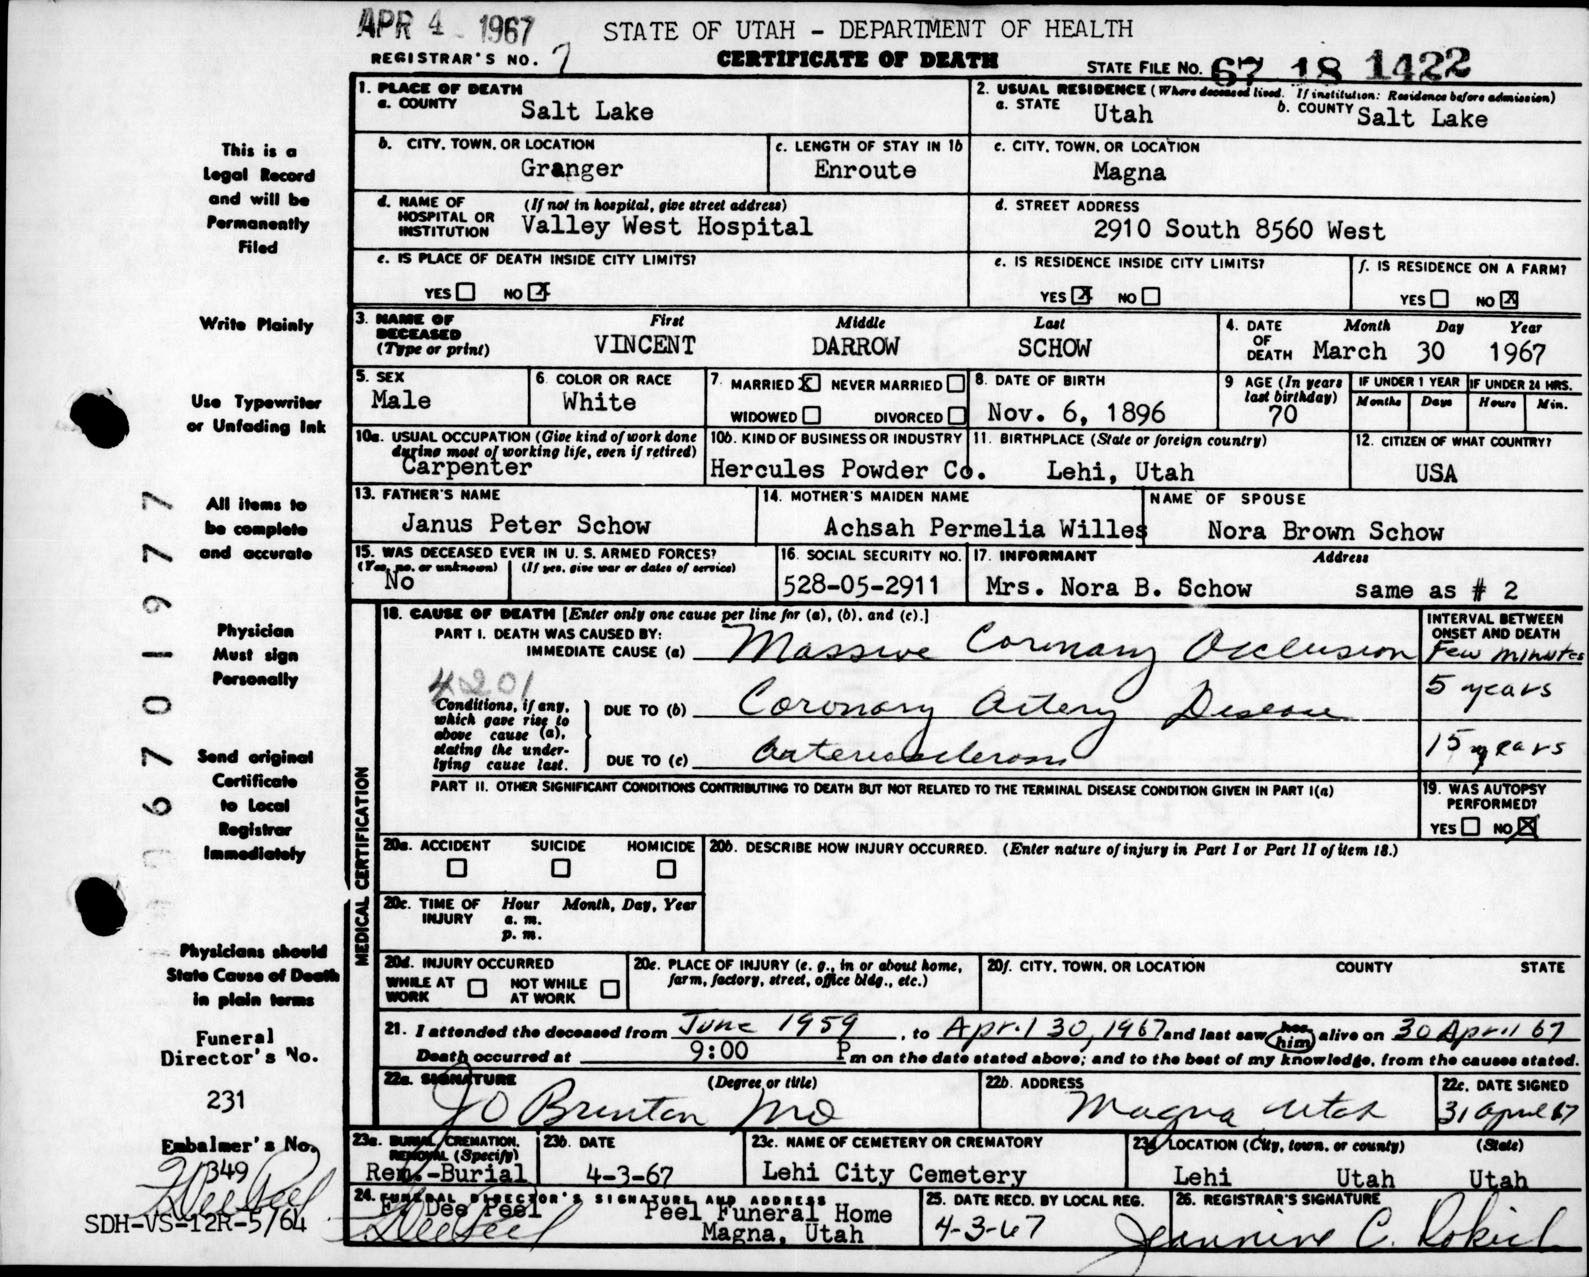 APR 4 1967
STATE OF UTAH - DEPARTMENT OF HEALTH
REGISTRAR'S NO. 7
CERTIFICATE OF DEATH
STATE FILE NO. 67 18 1422
This is a
Legal Record
and will be
Permanently
Filed
Write Plainly
Use Typewriter
or Unfading Ink
All items to
be complete
and accurate
Physician
Must sign
Personally
Send original
Certificate
to Local
Registrar
Immediately
Physicians should
State Cause of Death
in plain terms
Funeral
Director's No.
231
Embalmer's No.
349
SDH-VS-12R-5/64
67 0 1977
1. PLACE OF DEATH
a. COUNTY Salt Lake
2. USUAL RESIDENCE (Where deceased lived. If institution: Residence before admission)
a. STATE Utah b. COUNTY Salt Lake
b. CITY, TOWN, OR LOCATION Granger
c. LENGTH OF STAY IN 1b Enroute
c. CITY, TOWN, OR LOCATION Magna
d. NAME OF HOSPITAL OR INSTITUTION (If not in hospital, give street address) Valley West Hospital
d. STREET ADDRESS 2910 South 8560 West
e. IS PLACE OF DEATH INSIDE CITY LIMITS?
YES NO X
e. IS RESIDENCE INSIDE CITY LIMITS?
YES X NO
f. IS RESIDENCE ON A FARM?
YES NO X
3. NAME OF DECEASED (Type or print) First Middle Last
VINCENT DARROW SCHOW
4. DATE OF DEATH Month Day Year
March 30 1967
5. SEX Male
6. COLOR OR RACE White
7. MARRIED X NEVER MARRIED
WIDOWED DIVORCED
8. DATE OF BIRTH Nov. 6, 1896
9 AGE (In years last birthday) 70
IF UNDER 1 YEAR Months Days
IF UNDER 24 HRS. Hours Min.
10a. USUAL OCCUPATION (Give kind of work done during most of working life, even if retired) Carpenter
10b. KIND OF BUSINESS OR INDUSTRY Hercules Powder Co.
11. BIRTHPLACE (State or foreign country) Lehi, Utah
12. CITIZEN OF WHAT COUNTRY? USA
13. FATHER'S NAME Janus Peter Schow
14. MOTHER'S MAIDEN NAME Achsah Permelia Willes
NAME OF SPOUSE Nora Brown Schow
15. WAS DECEASED EVER IN U. S. ARMED FORCES?
(Yes, no. or unknown) (If yes, give war or dates of service)
No
16. SOCIAL SECURITY NO. 528-05-2911
17. INFORMANT Address
Mrs. Nora B. Schow same as # 2
MEDICAL CERTIFICATION
18. CAUSE OF DEATH [Enter only one cause per line for (a), (b), and (c).]
PART I. DEATH WAS CAUSED BY:
IMMEDIATE CAUSE (a) Massive Coronary Occlusion
INTERVAL BETWEEN ONSET AND DEATH
Few minutes
4201
Conditions, if any, which gave rise to above cause (a), stating the underlying cause last.
DUE TO (b) Coronary Artery Disease 5 years
DUE TO (c) Arteriosclerosis 15 years
PART II. OTHER SIGNIFICANT CONDITIONS CONTRIBUTING TO DEATH BUT NOT RELATED TO THE TERMINAL DISEASE CONDITION GIVEN IN PART I(a)
19. WAS AUTOPSY PERFORMED?
YES NO X
20a. ACCIDENT SUICIDE HOMICIDE
20b. DESCRIBE HOW INJURY OCCURRED. (Enter nature of injury in Part I or Part II of item 18.)
20c. TIME OF INJURY Hour Month, Day, Year
a. m.
p. m.
20d. INJURY OCCURRED
WHILE AT WORK NOT WHILE AT WORK
20e. PLACE OF INJURY (e. g., in or about home, farm, factory, street, office bldg., etc.)
20f. CITY, TOWN, OR LOCATION COUNTY STATE
21. I attended the deceased from June 1959, to April 30, 1967 and last saw her him alive on 30 April 67
Death occurred at 9:00 P m on the date stated above; and to the best of my knowledge, from the causes stated.
22a. SIGNATURE (Degree or title)
JO Brinton MD
22b. ADDRESS
Magna Utah
22c. DATE SIGNED
31 April 67
23a. BURIAL, CREMATION, REMOVAL (Specify)
Rem.-Burial
23b. DATE
4-3-67
23c. NAME OF CEMETERY OR CREMATORY
Lehi City Cemetery
23d LOCATION (City, town, or county) (State)
Lehi Utah Utah
24. FUNERAL DIRECTOR'S SIGNATURE AND ADDRESS
E. Dee Peel Peel Funeral Home
Magna, Utah
25. DATE RECD. BY LOCAL REG.
4-3-67
26. REGISTRAR'S SIGNATURE
Jeannine C.